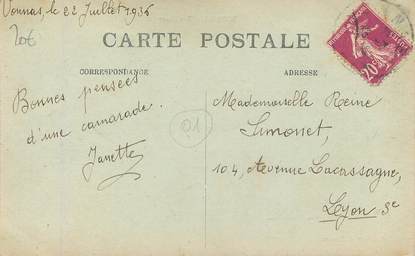 Vonnas, le 22 Juillet 1936
20€
CARTE POSTALE
CORRESPONDANCE
ADRESSE
Bonnes pensées
d'une camarade.
Janette
01
Mademoiselle Reine
Simonet,
104, Avenue Lacassagne,
Lyon 3e
20c